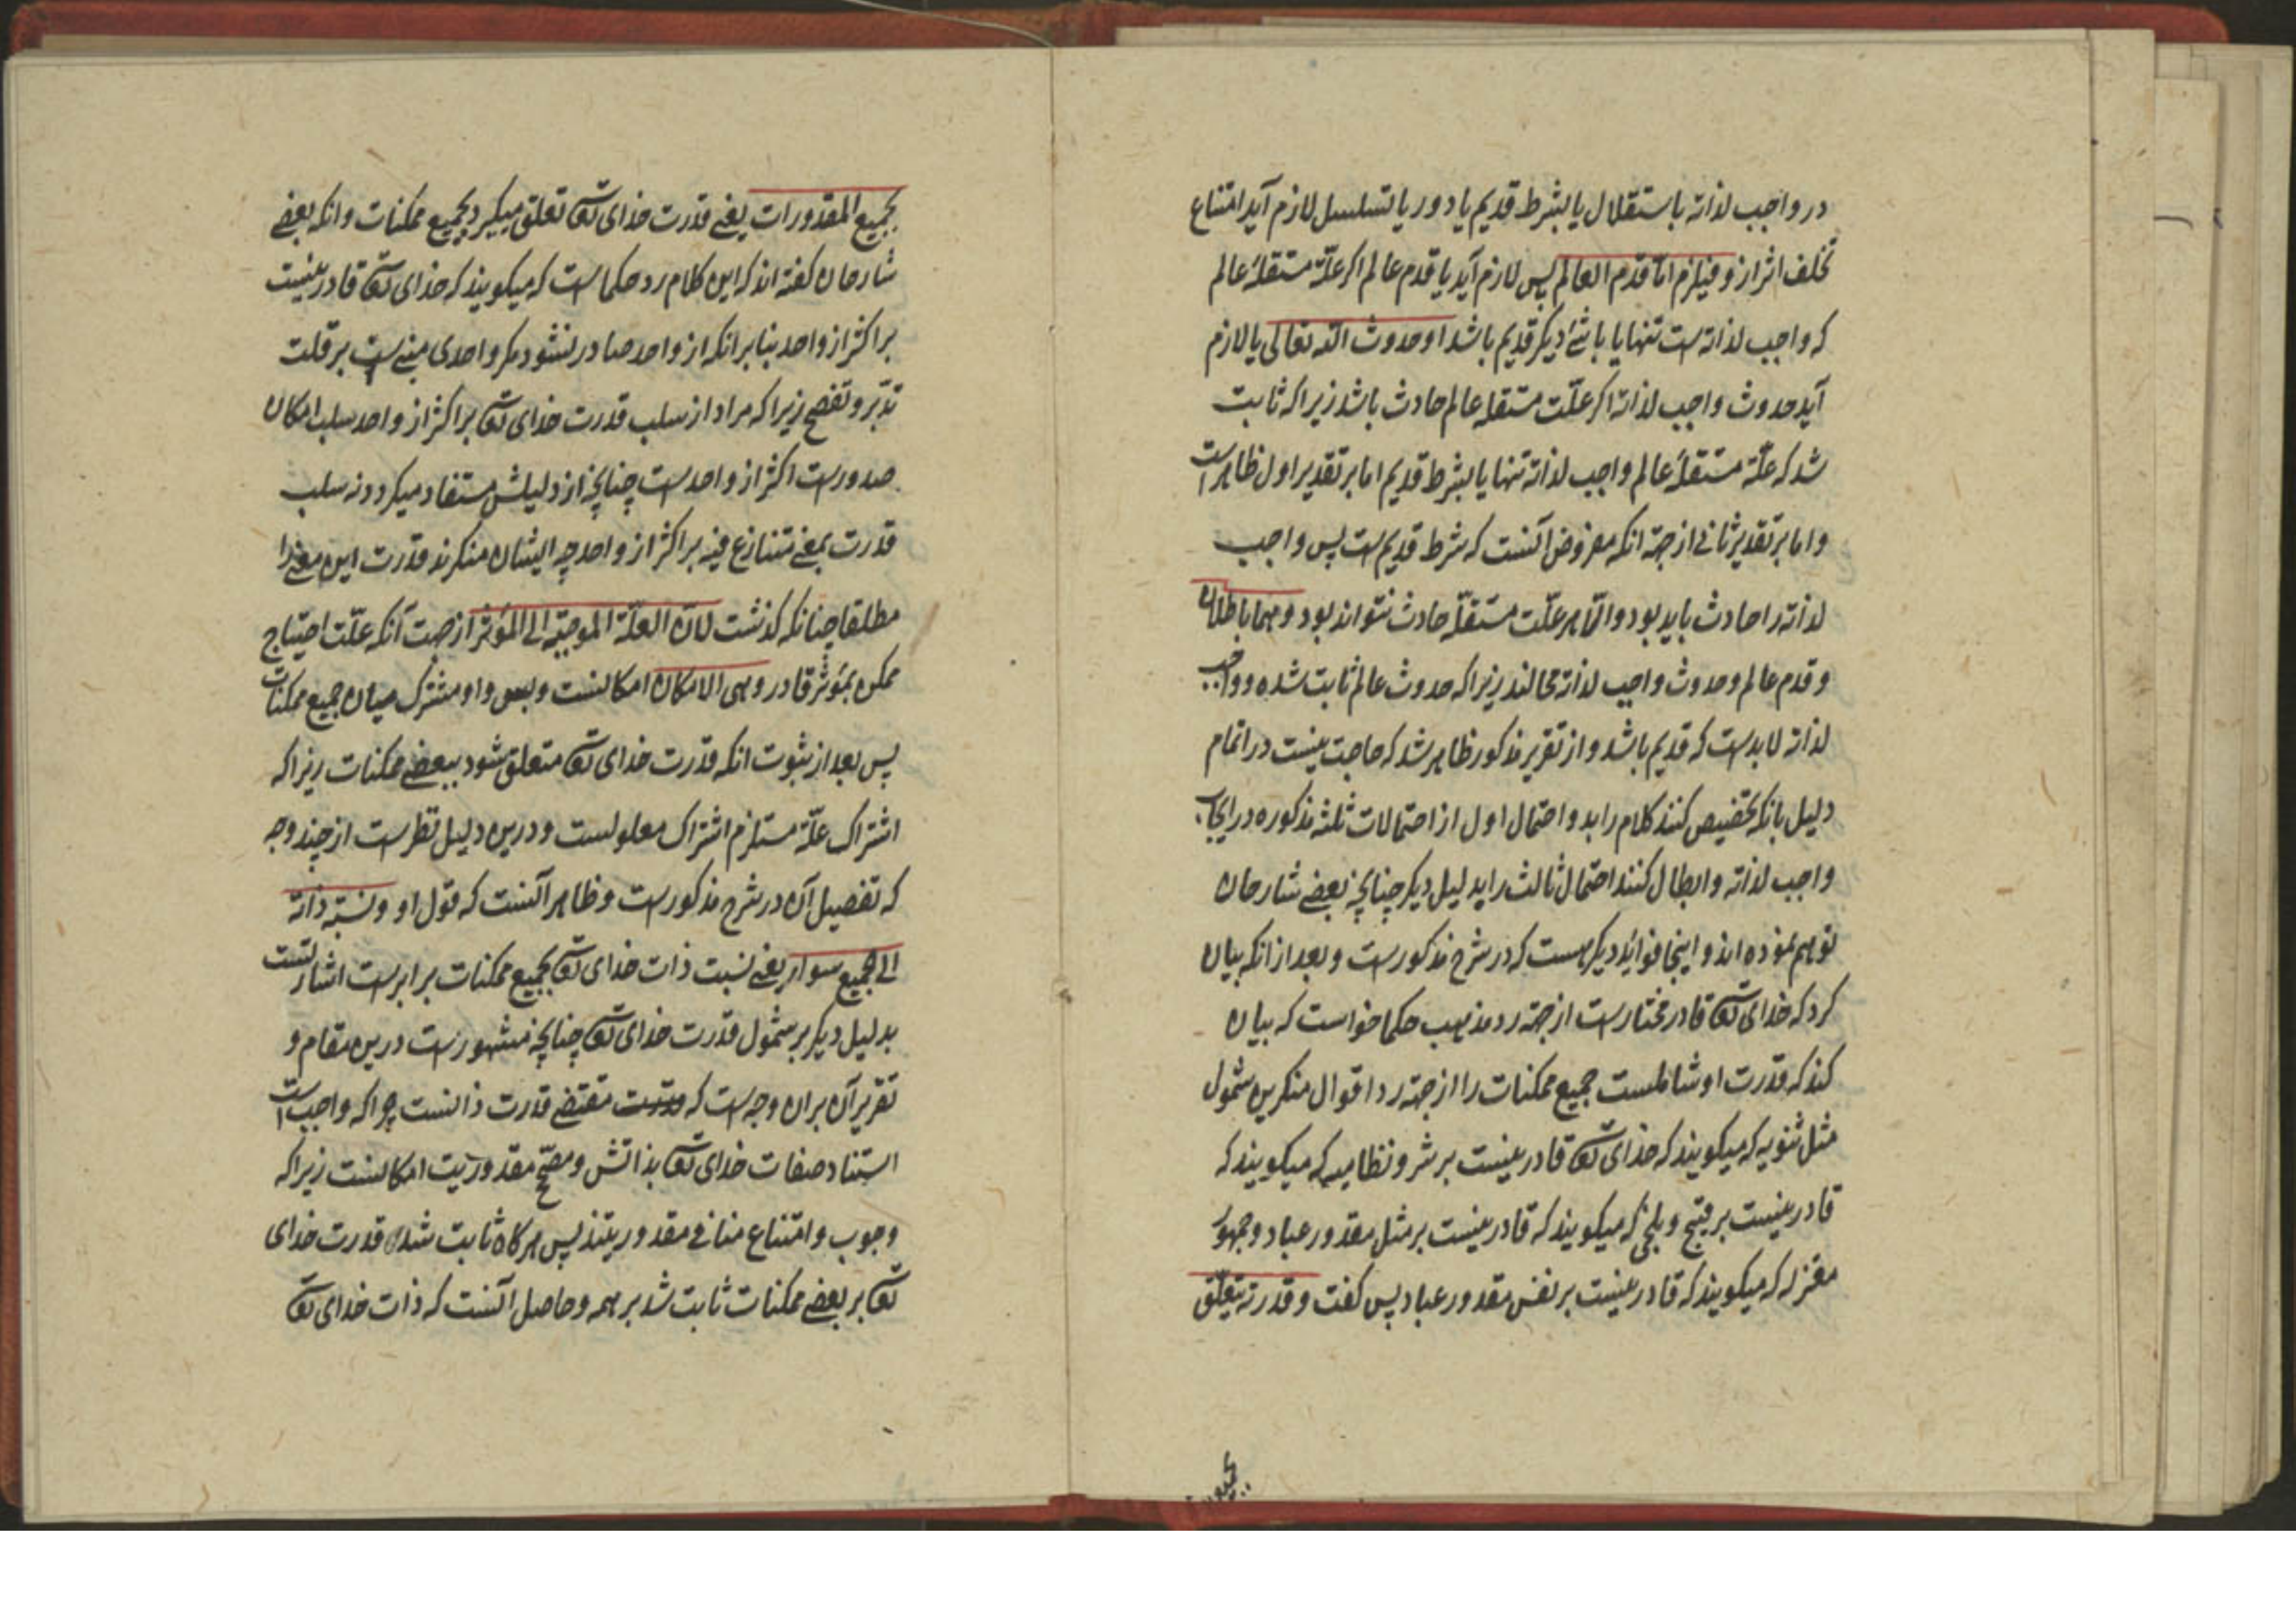 در واجب لذاته باستقلال یا بشرط قدیم یا دور یا تسلسل لازم آید امتناع
تخلف اثر ازو فیلزم اما قدم العالم پس لازم آید یا قدم عالم اکر علّة مستقلهٔ عالم
که واجب لذاته است تنها یا با شئ دیکر قدیم باشد او حدوث الله تعالی یا لازم
آید حدوث واجب لذاته اکر علّت مستقله عالم حادث باشد زیرا که ثابت
شد که علّة مستقلهٔ عالم واجب لذاته تنها یا بشرط قدیم اما بر تقدیر اول ظاهر است
و اما بر تقدیر ثانی از جهة انکه مفروض آنست که شرط قدیم است پس واجب
لذاته را حادث باید بود و الّا هر علّت مستقلّه حادث نتواند بود وهما باطلان
و قدم عالم و حدوث واجب لذاته محالند زیرا که حدوث عالم ثابت شده و واجب
لذاته لا بد است که قدیم باشد و از تقریر مذکور ظاهر شد که حاجت نیست در اتمام
دلیل بانکه تخصیص کنند کلام را بد و احتمال اول از احتمالات ثلثه مذکوره در ایجاب
واجب لذاته و ابطال کنند احتمال ثالث را بدلیل دیکر چنانچه بعضی شارحان
توهم نموده اند و اینجا فوائد دیکر هست که در شرح مذکور است و بعد از انکه بیان
کرد که خدای تعا قادر مختار است از جهة رد مذهب حکما خواست که بیان
کند که قدرت او شاملست جمیع ممکنات را از جهة رد اقوال منکرین شمول
مثل ثنویه که میکویند که خدای تعا قادر نیست بر شر و نظامیه که میکویند که
قادر نیست بر قبیح و بلخی که میکویند که قادر نیست بر مثل مقدور عباد و جمهور
معتزله که میکویند که قادر نیست بر نفس مقدور عباد پس کفت و قدرته یتعلّق
بجمیع المقدورات یعنی قدرت خدای تعا تعلق میکیرد بجمیع ممکنات و انکه بعضی
شارحان کفته اند که این کلام رد حکما است که میکویند که خدای تعا قادر نیست
بر اکثر از واحد بنا بر انکه از واحد صادر نشود مکر واحدی مبنی است بر قلت
تدبّر و تفحص زیرا که مراد از سلب قدرت خدای تعا بر اکثر از واحد سلب امکان
صدور است اکثر از واحد است چنانچه از دلیلش مستفاد میکردد نه سلب
قدرت بمعنی متنازع فیه بر اکثر از واحد چه ایشان منکرند قدرت این معنی را
مطلقا چنانکه کذشت لان العلّة الموجبة الی المؤثر از جهت آنکه علّت احتیاج
ممکن بمؤثر قادر وهی الامکان امکانست و بس و او مشترک میان جمیع ممکنات
پس بعد از ثبوت انکه قدرت خدای تعا متعلق شود ببعضی ممکنات زیرا که
اشتراک علّة مستلزم اشتراک معلولست و درین دلیل نظر است از چند وجه
که تفصیل آن در شرح مذکور است و ظاهر آنست که قول او و نسبة ذاته
الی الجمیع سواء یعنی نسبت ذات خدای تعا بجمیع ممکنات برابر است اشارتست
بدلیل دیکر بر شمول قدرت خدای تعا چنانچه مشهور است درین مقام و
تقریر آن بران وجه است که مقتضی قدرت ذاتست چرا که واجب است
استناد صفات خدای تعا بذاتش و مصحّح مقدوریت امکانست زیرا که
وجوب و امتناع منافی مقدوریتند پس هر کاه ثابت شد قدرت خدای
تعا بر بعضی ممکنات ثابت شد بر همه و حاصل آنست که ذات خدای تعا